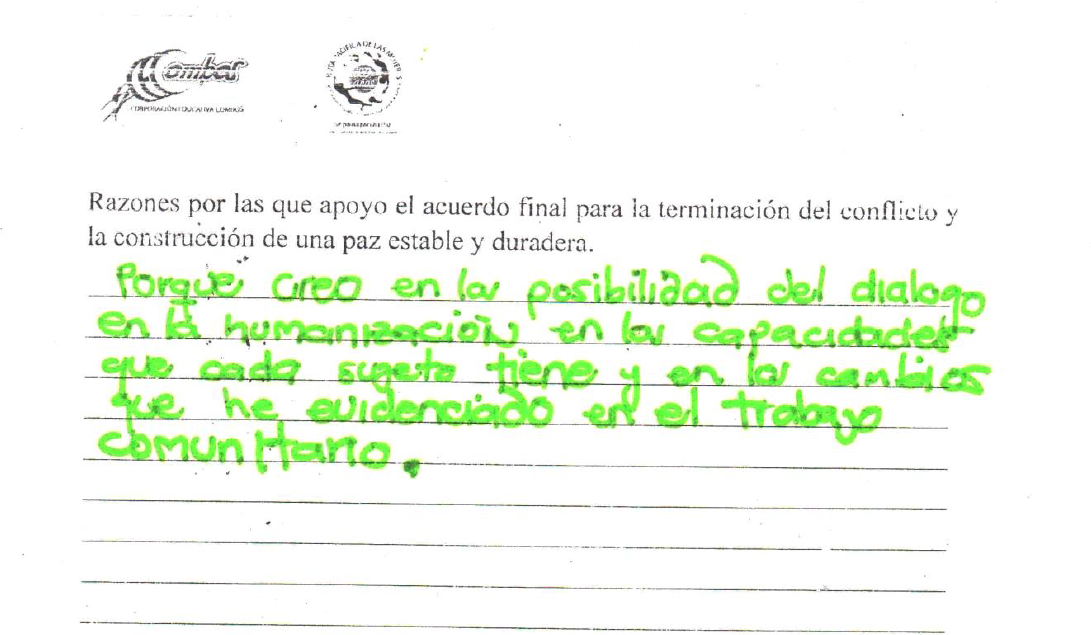 Combos
CORPORACIÓN EDUCATIVA COMBOS
RUTA PACÍFICA DE LAS MUJERES
Razones por las que apoyo el acuerdo final para la terminación del conflicto y
la construcción de una paz estable y duradera.
Porque creo en la posibilidad del dialogo
en la humanización en las capacidades
que cada sugeto tiene y en los cambios
que he evidenciado en el trabajo
comunitario.